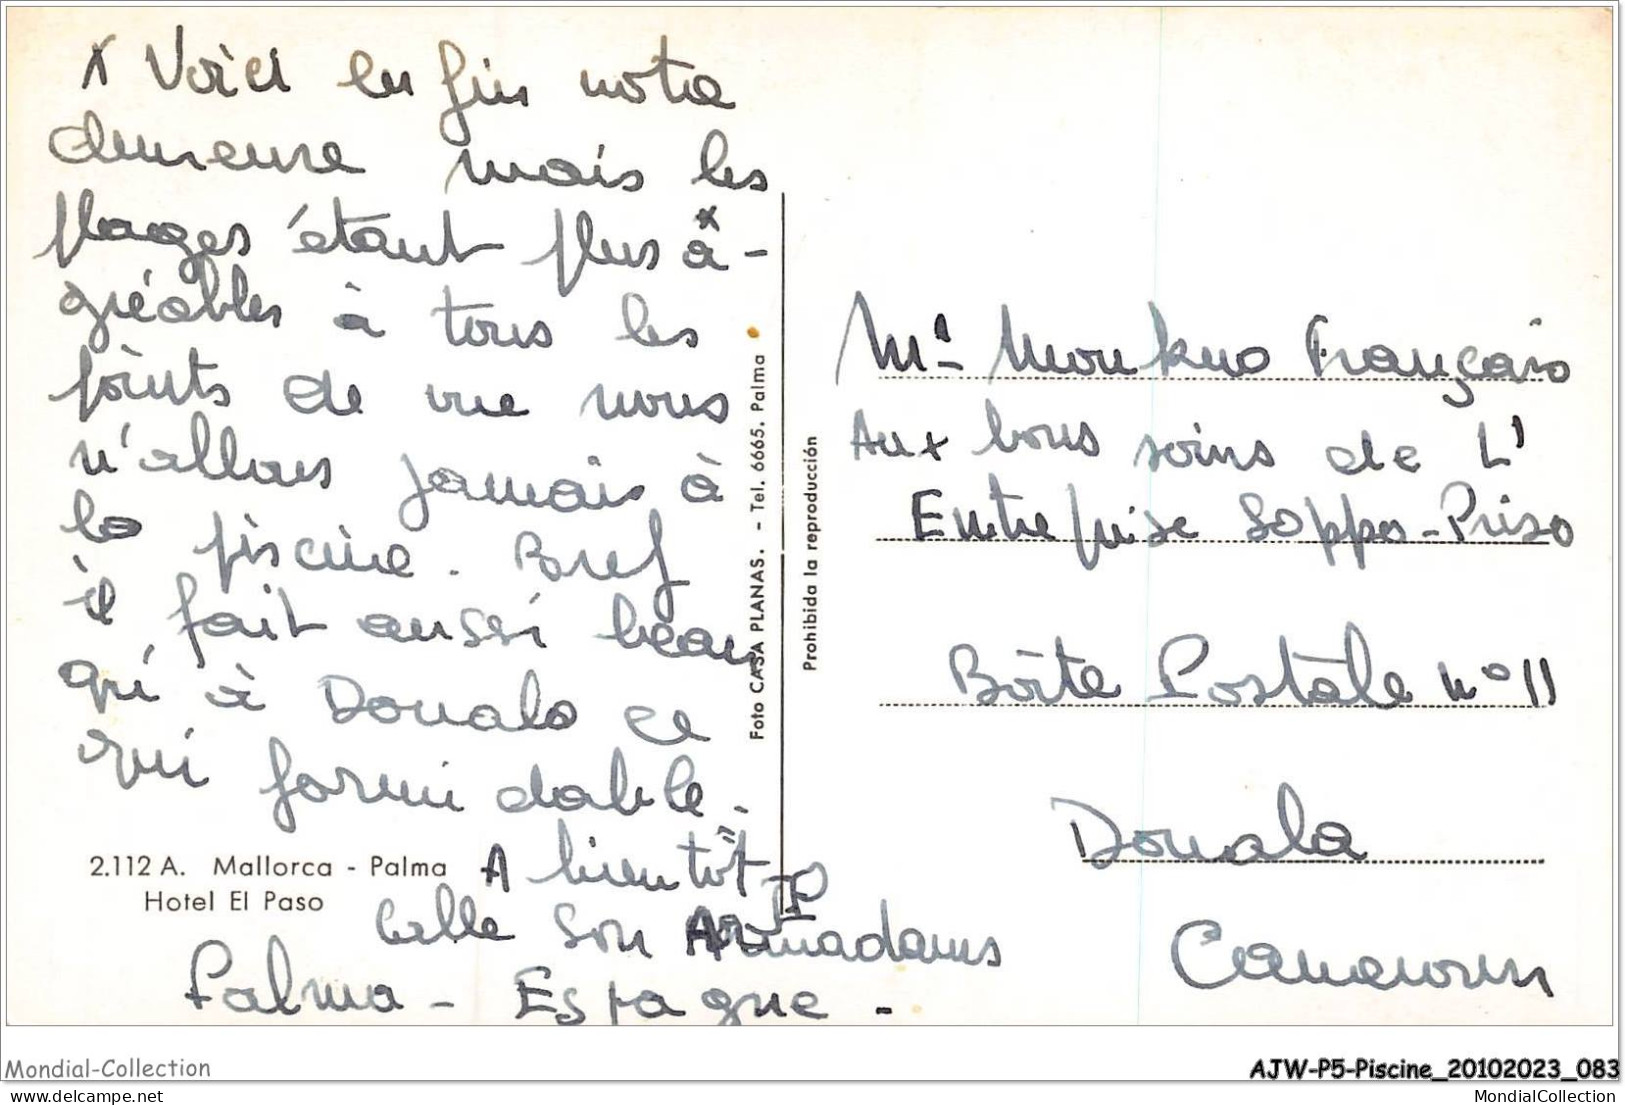 x Voici enfin notre
demeure mais les
plages étant plus a-
gréables à tous les
points de vue nous
n'allons jamais à
la piscine. Bref
il fait aussi beau
qu'à Douala ce
qui formidable.
A bientôt
Calle Son Armadams
Palma - Espagne -
2.112 A. Mallorca - Palma
Hotel El Paso
Foto CASA PLANAS. - Tel. 6665. Palma
Prohibida la reproducción
Mr Moukuo Français
Aux bons soins de L'
Entreprise Soppo-Priso
Boîte Postale n° 11
Douala
Cameroun
Mondial-Collection
AJW-P5-Piscine_20102023_083
MondialCollection